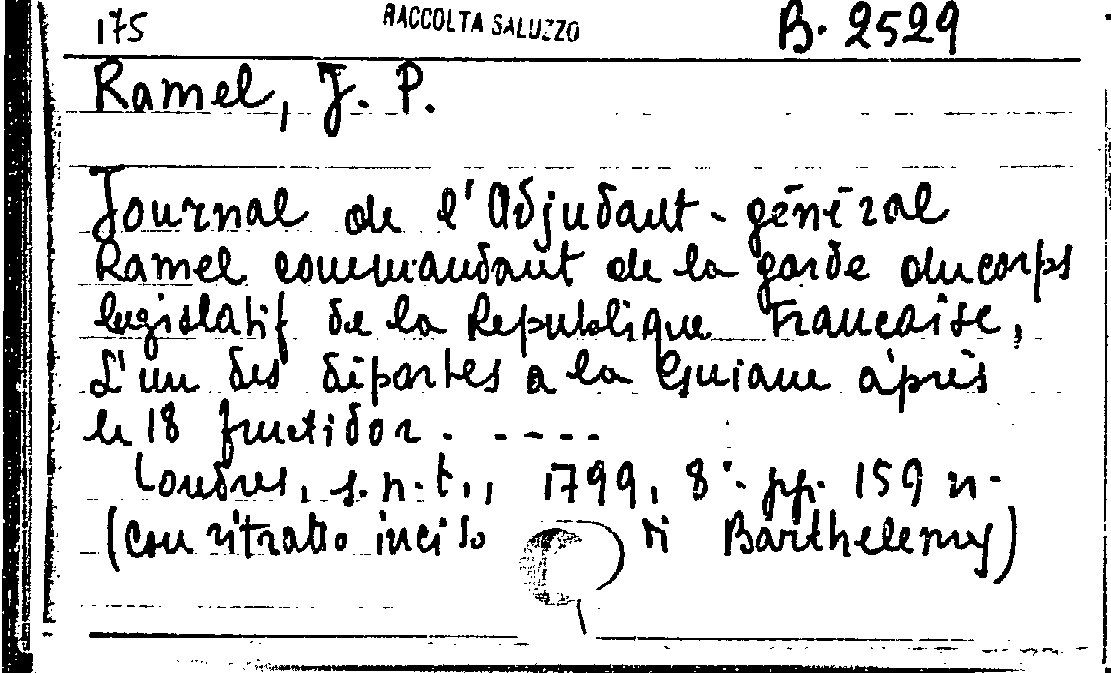 175 RACCOLTA SALUZZO B. 2529
Ramel, J. P.
Journal de l'Adjudant-général
Ramel commandant de la garde du corps
legislatif de la Republique Française,
L'un des déportes a la Guiane après
le 18 fructidor. ----
Londres, s.n.t., 1799, 8° pp. 159 n.
(con ritratto inciso di Barthelemy)